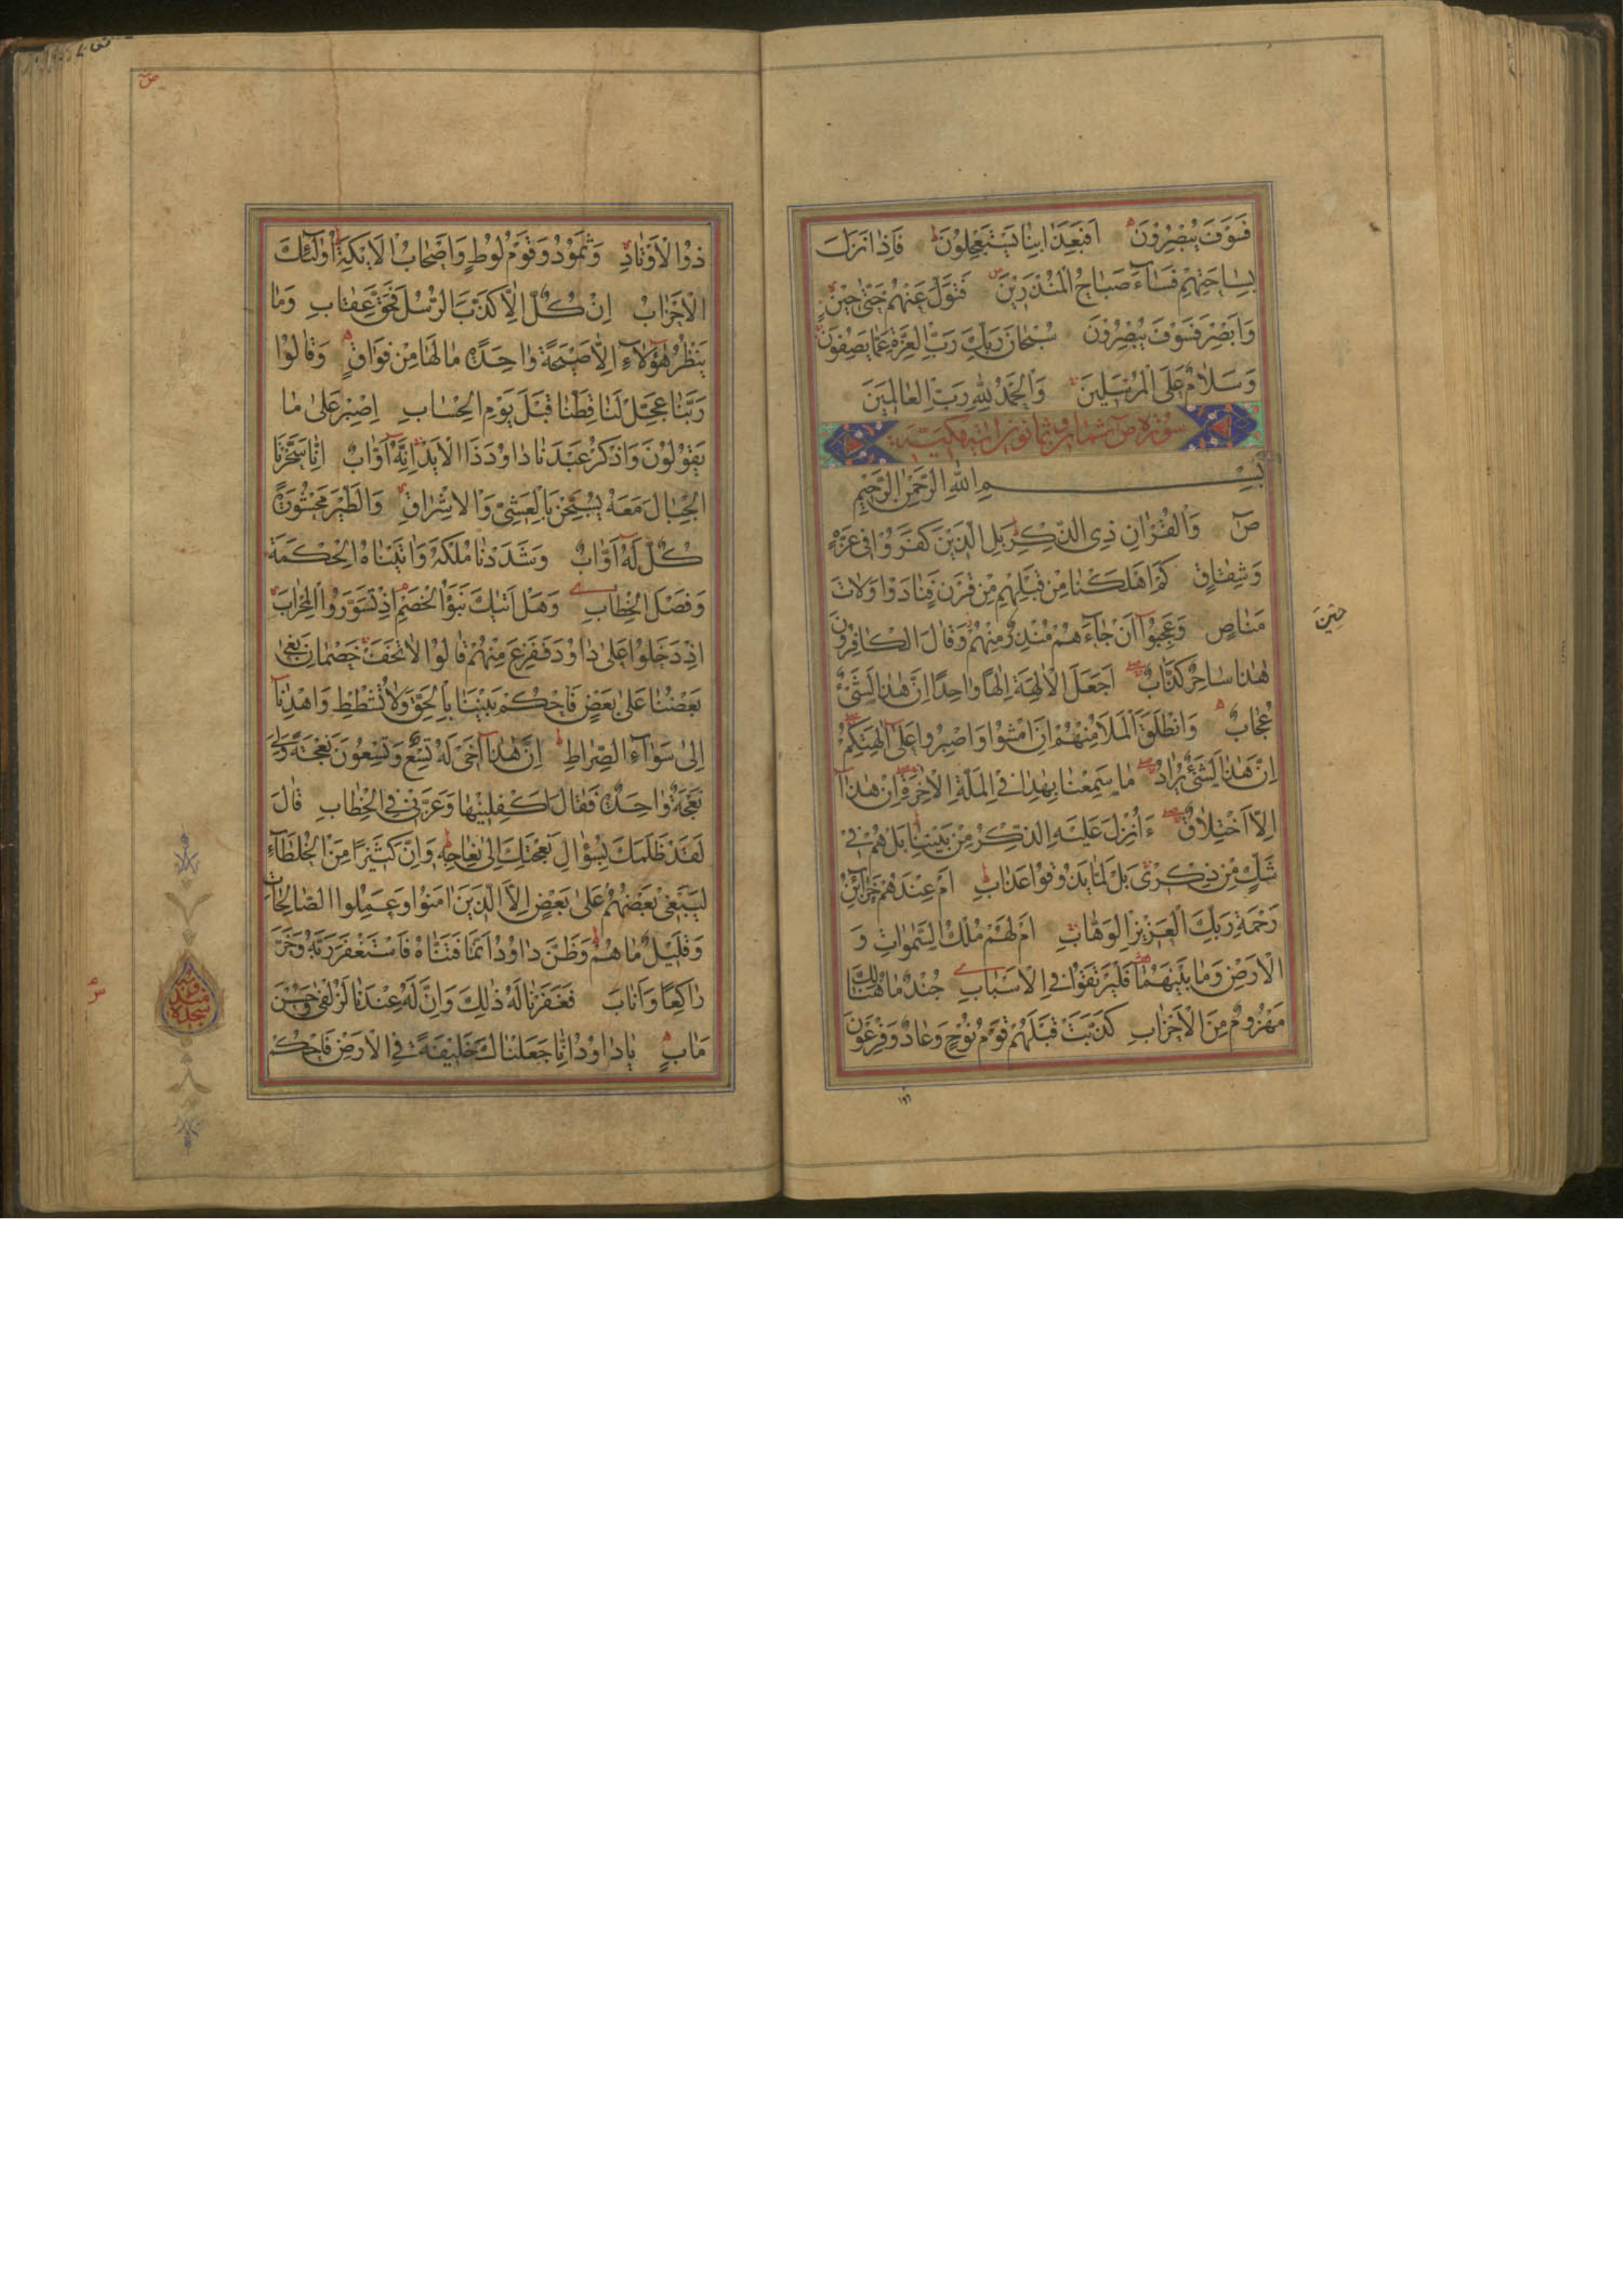 فَسَوْفَ يُبْصِرُونَ اَفَبِعَذَابِنَا يَسْتَعْجِلُونَ فَاِذَا نَزَلَ
بِسَاحَتِهِمْ فَسَآءَ صَبَاحُ الْمُنْذَرِينَ وَتَوَلَّ عَنْهُمْ حَتّٰى حِينٍ
وَاَبْصِرْ فَسَوْفَ يُبْصِرُونَ سُبْحَانَ رَبِّكَ رَبِّ الْعِزَّةِ عَمَّا يَصِفُونَ
وَسَلَامٌ عَلَى الْمُرْسَلِينَ وَالْحَمْدُ لِلّٰهِ رَبِّ الْعَالَمِينَ
سورة ص
بِسْمِ اللهِ الرَّحْمٰنِ الرَّحِيمِ
صٓ وَالْقُرْاٰنِ ذِى الذِّكْرِ بَلِ الَّذِينَ كَفَرُوا فِى عِزَّةٍ
وَشِقَاقٍ كَمْ اَهْلَكْنَا مِنْ قَبْلِهِمْ مِنْ قَرْنٍ فَنَادَوْا وَلَاتَ
حِينَ
مَنَاصٍ وَعَجِبُوٓا اَنْ جَآءَهُمْ مُنْذِرٌ مِنْهُمْ وَقَالَ الْكَافِرُونَ
هٰذَا سَاحِرٌ كَذَّابٌ اَجَعَلَ الْاٰلِهَةَ اِلٰهًا وَاحِدًا اِنَّ هٰذَا لَشَىْءٌ
عُجَابٌ وَانْطَلَقَ الْمَلَاُ مِنْهُمْ اَنِ امْشُوا وَاصْبِرُوا عَلٰٓى اٰلِهَتِكُمْ
اِنَّ هٰذَا لَشَىْءٌ يُرَادُ مَا سَمِعْنَا بِهٰذَا فِى الْمِلَّةِ الْاٰخِرَةِ اِنْ هٰذَآ
اِلَّا اخْتِلَاقٌ ءَاُنْزِلَ عَلَيْهِ الذِّكْرُ مِنْ بَيْنِنَا بَلْ هُمْ فِى
شَكٍّ مِنْ ذِكْرِى بَلْ لَمَّا يَذُوقُوا عَذَابِ اَمْ عِنْدَهُمْ خَزَآئِنُ
رَحْمَةِ رَبِّكَ الْعَزِيزِ الْوَهَّابِ اَمْ لَهُمْ مُلْكُ السَّمٰوَاتِ وَ
الْاَرْضِ وَمَا بَيْنَهُمَا فَلْيَرْتَقُوا فِى الْاَسْبَابِ جُنْدٌ مَا هُنَالِكَ
مَهْزُومٌ مِنَ الْاَحْزَابِ كَذَّبَتْ قَبْلَهُمْ قَوْمُ نُوحٍ وَعَادٌ وَفِرْعَوْنُ
١٩٦
ص
ذُو الْاَوْتَادِ وَثَمُودُ وَقَوْمُ لُوطٍ وَاَصْحَابُ الْاَيْكَةِ اُولٰٓئِكَ
الْاَحْزَابُ اِنْ كُلٌّ اِلَّا كَذَّبَ الرُّسُلَ فَحَقَّ عِقَابِ وَمَا
يَنْظُرُ هٰٓؤُلَآءِ اِلَّا صَيْحَةً وَاحِدَةً مَا لَهَا مِنْ فَوَاقٍ وَقَالُوا
رَبَّنَا عَجِّلْ لَنَا قِطَّنَا قَبْلَ يَوْمِ الْحِسَابِ اِصْبِرْ عَلٰى مَا
يَقُولُونَ وَاذْكُرْ عَبْدَنَا دَاوُدَ ذَا الْاَيْدِ اِنَّهٓ اَوَّابٌ اِنَّا سَخَّرْنَا
الْجِبَالَ مَعَهُ يُسَبِّحْنَ بِالْعَشِىِّ وَالْاِشْرَاقِ وَالطَّيْرَ مَحْشُورَةً
كُلٌّ لَهٓ اَوَّابٌ وَشَدَدْنَا مُلْكَهُ وَاٰتَيْنَاهُ الْحِكْمَةَ
وَفَصْلَ الْخِطَابِ وَهَلْ اَتٰيكَ نَبَؤُا الْخَصْمِ اِذْ تَسَوَّرُوا الْمِحْرَابَ
اِذْ دَخَلُوا عَلٰى دَاوُدَ فَفَزِعَ مِنْهُمْ قَالُوا لَا تَخَفْ خَصْمَانِ بَغٰى
بَعْضُنَا عَلٰى بَعْضٍ فَاحْكُمْ بَيْنَنَا بِالْحَقِّ وَلَا تُشْطِطْ وَاهْدِنَآ
اِلٰى سَوَآءِ الصِّرَاطِ اِنَّ هٰذَآ اَخِى لَهُ تِسْعٌ وَتِسْعُونَ نَعْجَةً وَلِىَ
نَعْجَةٌ وَاحِدَةٌ فَقَالَ اَكْفِلْنِيهَا وَعَزَّنِى فِى الْخِطَابِ قَالَ
لَقَدْ ظَلَمَكَ بِسُؤَالِ نَعْجَتِكَ اِلٰى نِعَاجِهِ وَاِنَّ كَثِيرًا مِنَ الْخُلَطَآءِ
لَيَبْغِى بَعْضُهُمْ عَلٰى بَعْضٍ اِلَّا الَّذِينَ اٰمَنُوا وَعَمِلُوا الصَّالِحَاتِ
وَقَلِيلٌ مَا هُمْ وَظَنَّ دَاوُدُ اَنَّمَا فَتَنَّاهُ فَاسْتَغْفَرَ رَبَّهُ وَخَرَّ
رَاكِعًا وَاَنَابَ فَغَفَرْنَا لَهُ ذٰلِكَ وَاِنَّ لَهُ عِنْدَنَا لَزُلْفٰى وَحُسْنَ
مَاٰبٍ يَا دَاوُدُ اِنَّا جَعَلْنَاكَ خَلِيفَةً فِى الْاَرْضِ فَاحْكُمْ
سجدة